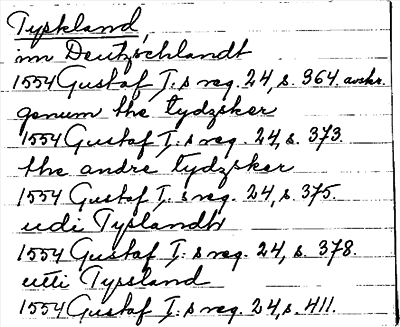 Tyskland,
im Deutzschlandt
1554 Gustaf I:s reg. 24, s. 364. avskr.
genum the tydzsker
1554 Gustaf I:s reg. 24, s. 373.
the andre tydzsker
1554 Gustaf I:s reg. 24, s. 375.
udi Tyslandh
1554 Gustaf I:s reg. 24, s. 378.
utti Tyssland
1554 Gustaf I:s reg. 24, s. 411.